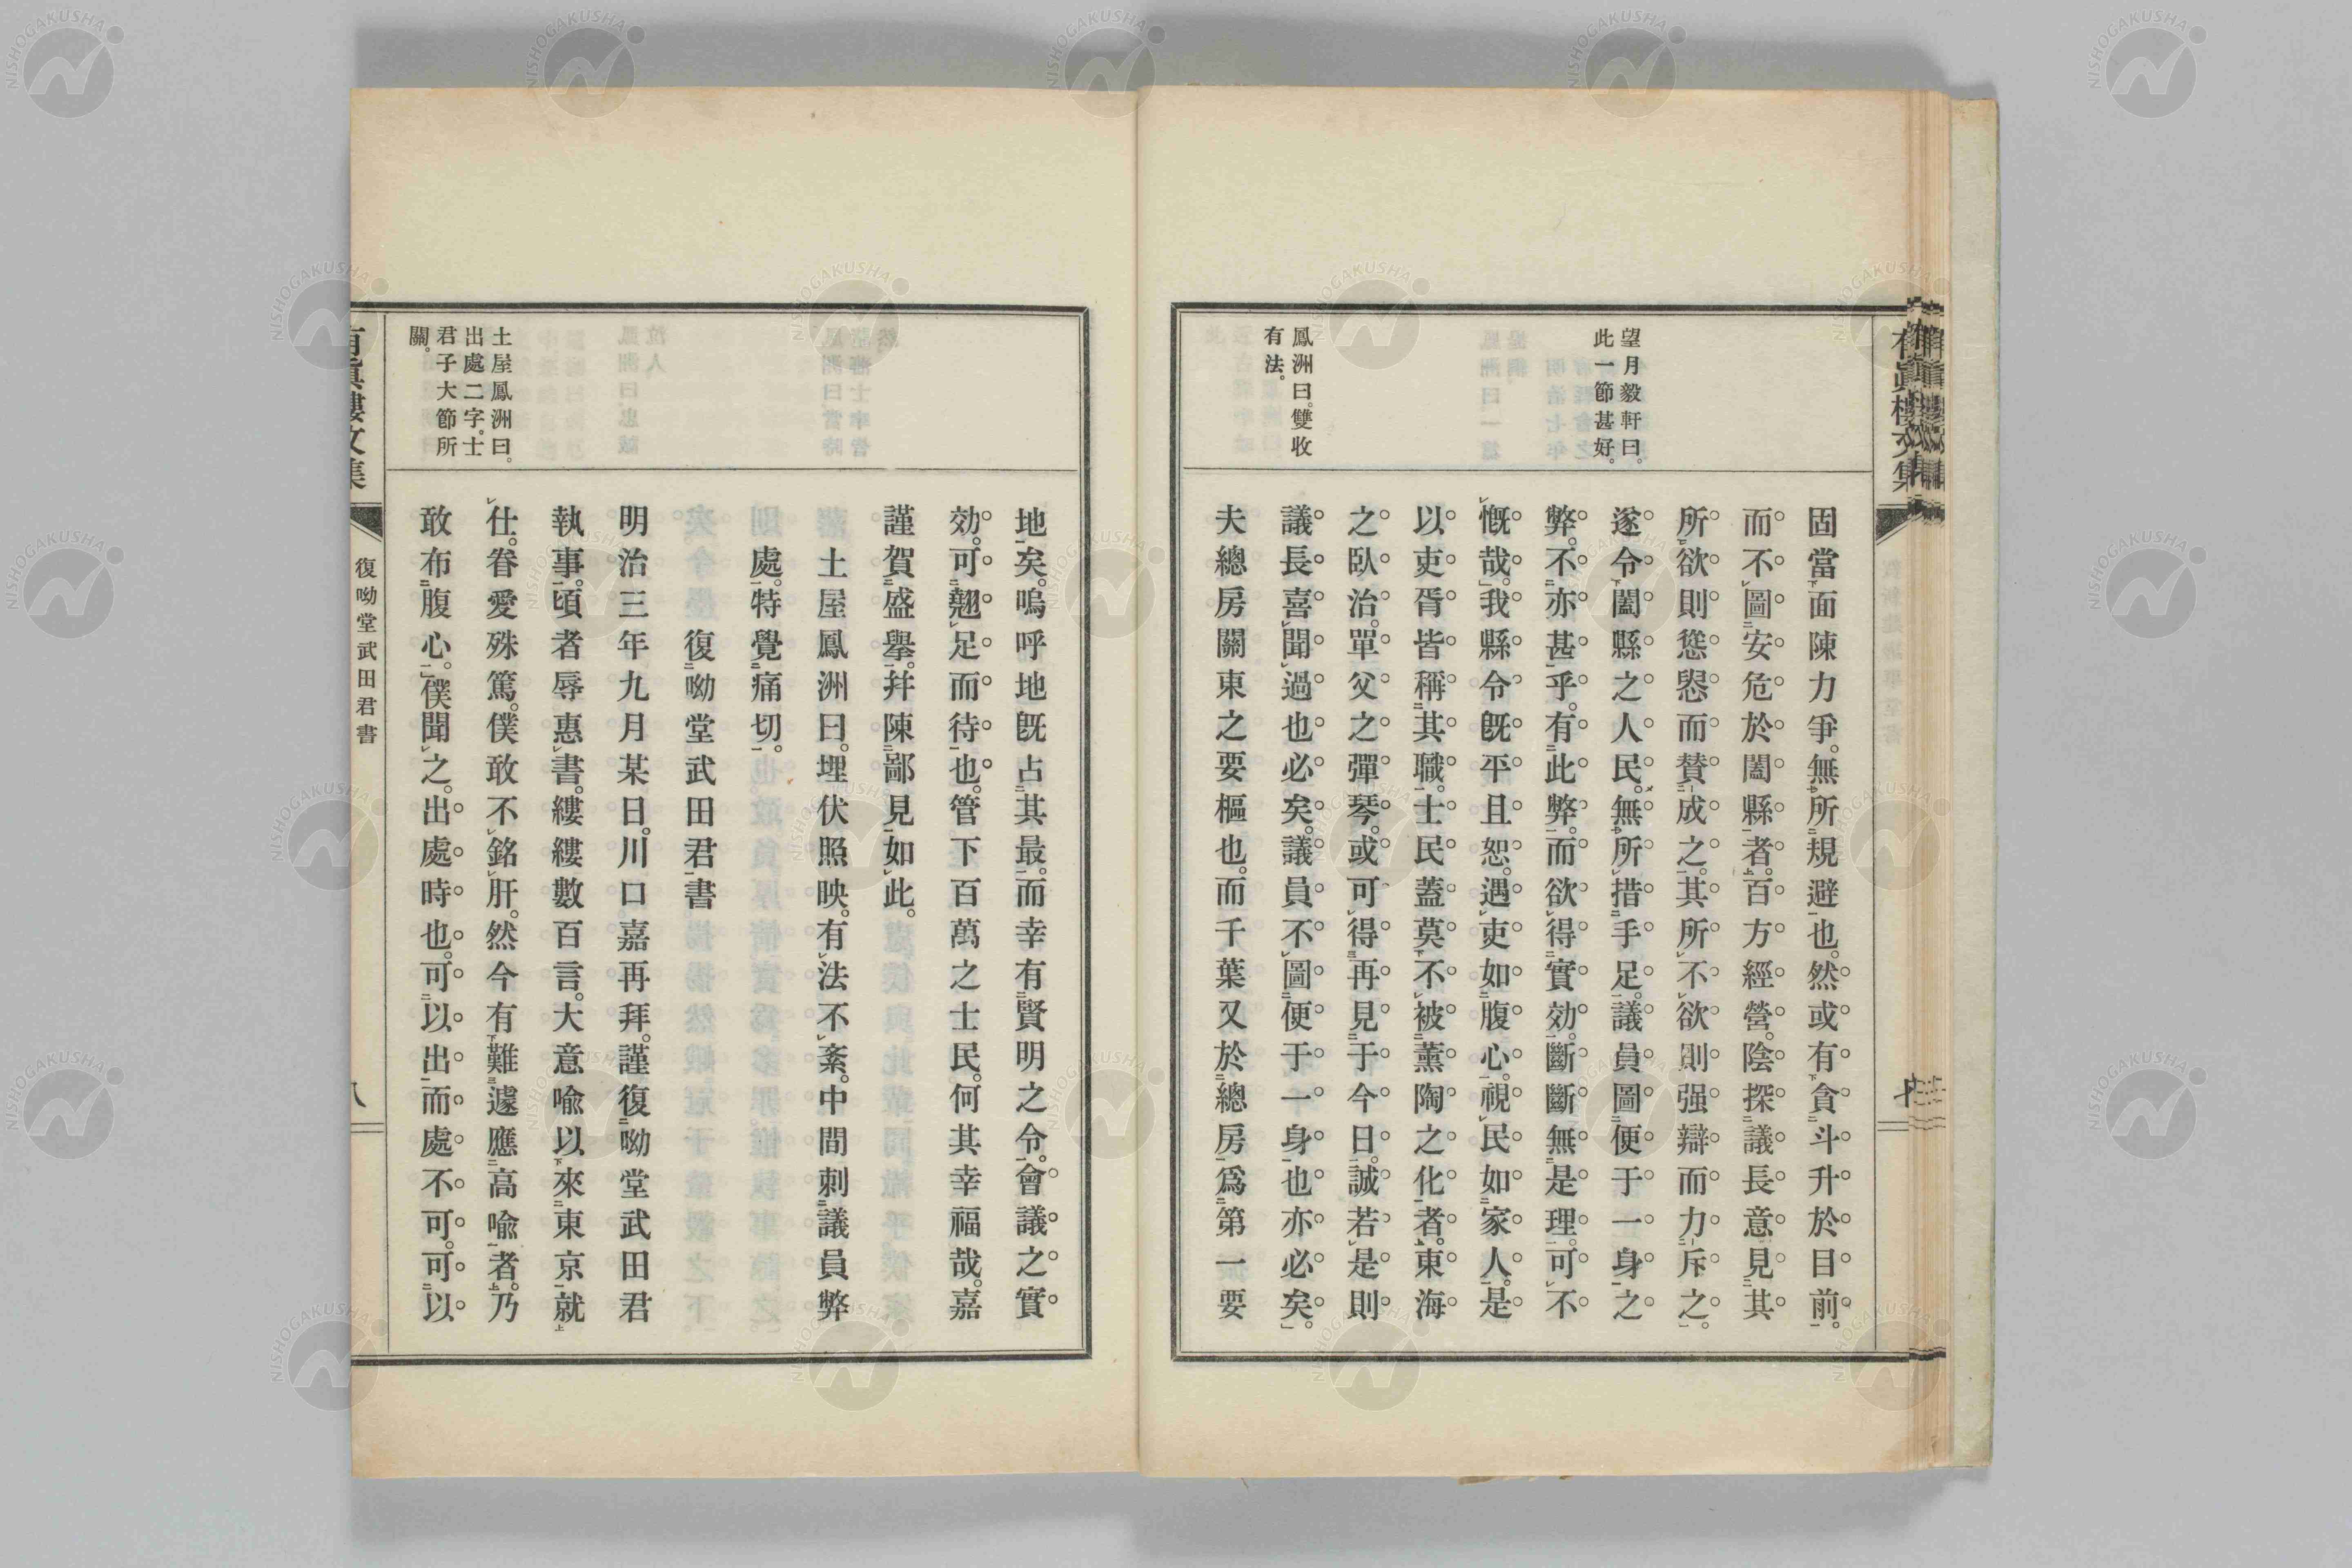 望月毅軒曰。
此一節甚好。
鳳洲曰。雙收
有法。
固當面陳力爭。無所規避也。然或有貪斗升於目前。
而不圖安危於闔縣者。百方經營。陰探議長意見其
所欲則慫慂而贊成之。其所不欲則强辯而力斥之。
遂令闔縣之人民。無所措手足。議員圖便于一身之
弊。不亦甚乎。有此弊。而欲得實効。斷斷無是理。可不
慨哉。我縣令既平且恕。遇吏如腹心。視民如家人。是
以吏胥皆稱其職。士民蓋莫不被薰陶之化者。東海
之臥治。單父之彈琴。或可得再見于今日。誠若是則
議長喜聞過也必矣。議員不圖便于一身也亦必矣。
夫總房關東之要樞也。而千葉又於總房爲第一要
地矣。嗚呼地既占其最。而幸有賢明之令。會議之實
効。可翹足而待也。管下百萬之士民。何其幸福哉。嘉
謹賀盛擧。并陳鄙見如此。
土屋鳳洲曰。埋伏照映。有法不紊。中間刺議員弊
處。特覺痛切。
復呦堂武田君書
明治三年九月某日。川口嘉再拜。謹復呦堂武田君
執事。頃者辱惠書。縷縷數百言。大意喩以來東京就
仕。眷愛殊篤。僕敢不銘肝。然今有難遽應高喩者。乃
敢布腹心。僕聞之。出處時也。可以出而處不可。可以
土屋鳳洲曰。
出處二字。士
君子大節所
關。
復呦堂武田君書
NISHOGAKUSHA